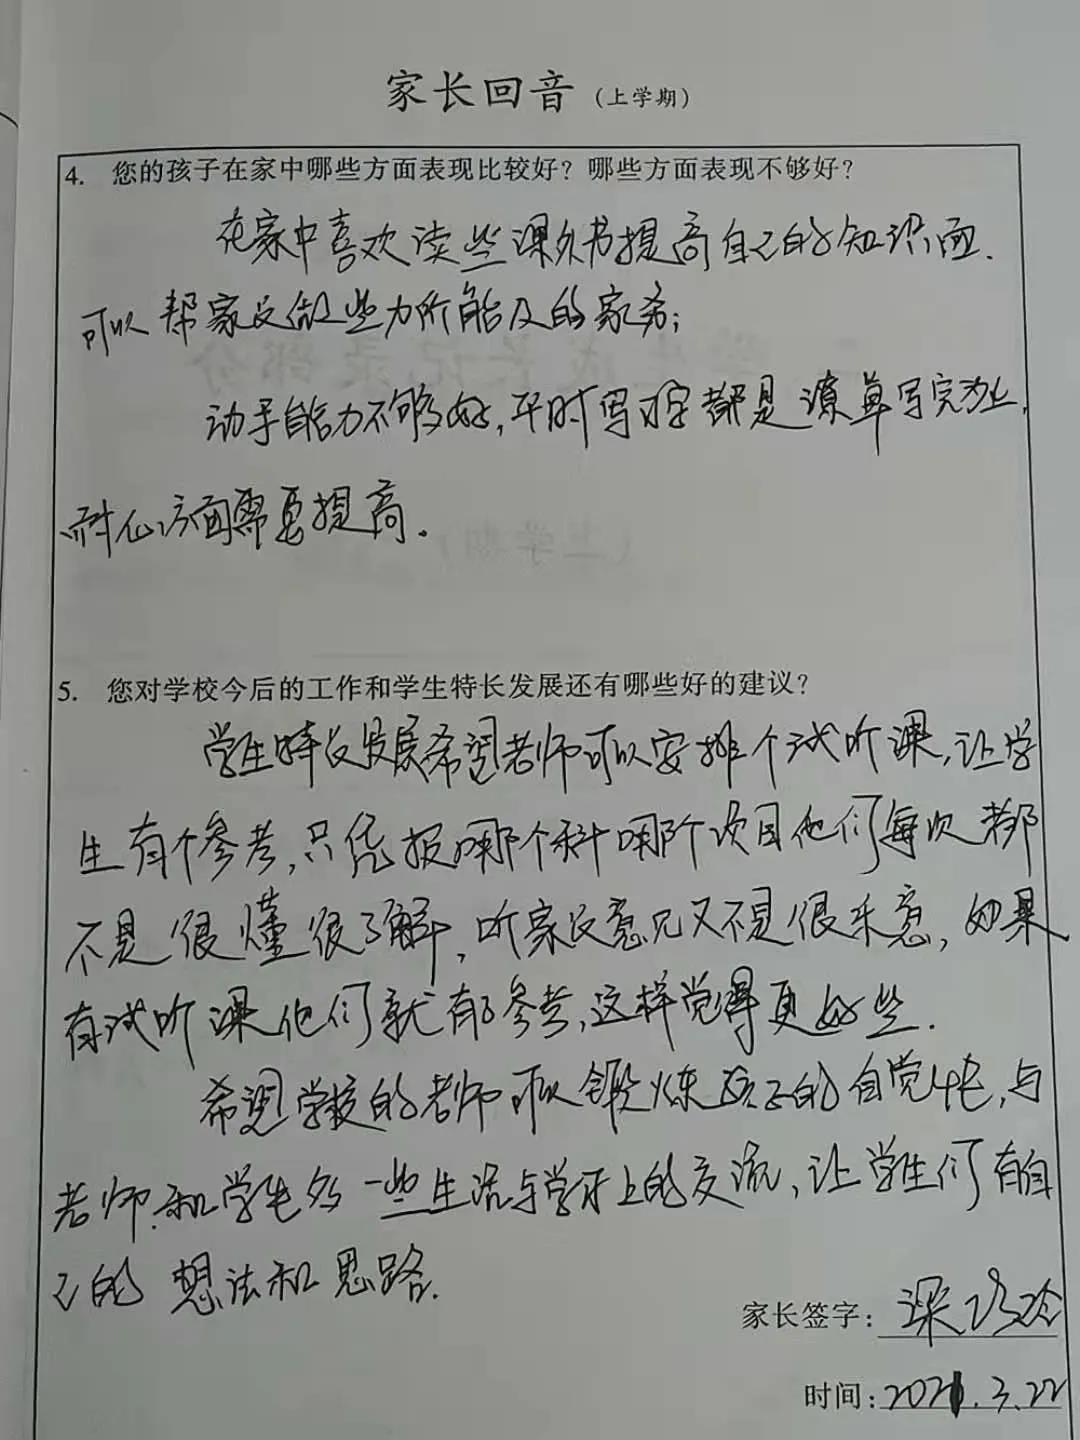 家长回音(上学期)
4. 您的孩子在家中哪些方面表现比较好？哪些方面表现不够好？
在家中喜欢读些课外书提高自己的知识面.
可以帮家长做些力所能及的家务；
动手能力不够好,平时写字都是潦草写完为止,
耐心方面需要提高.
5. 您对学校今后的工作和学生特长发展还有哪些好的建议？
学生特长发展希望老师可以安排个试听课,让学
生有个参考,只凭报哪个科哪个项目他们每次都
不是很懂很了解,听家长意见又不是很乐意,如果
有试听课他们就有参考,这样觉得更好些.
希望学校的老师可以锻炼孩子的自觉性,与
老师.和学生多一些生活与学习上的交流,让学生们有自
己的想法和思路.
家长签字:梁
时间:2021.3.22